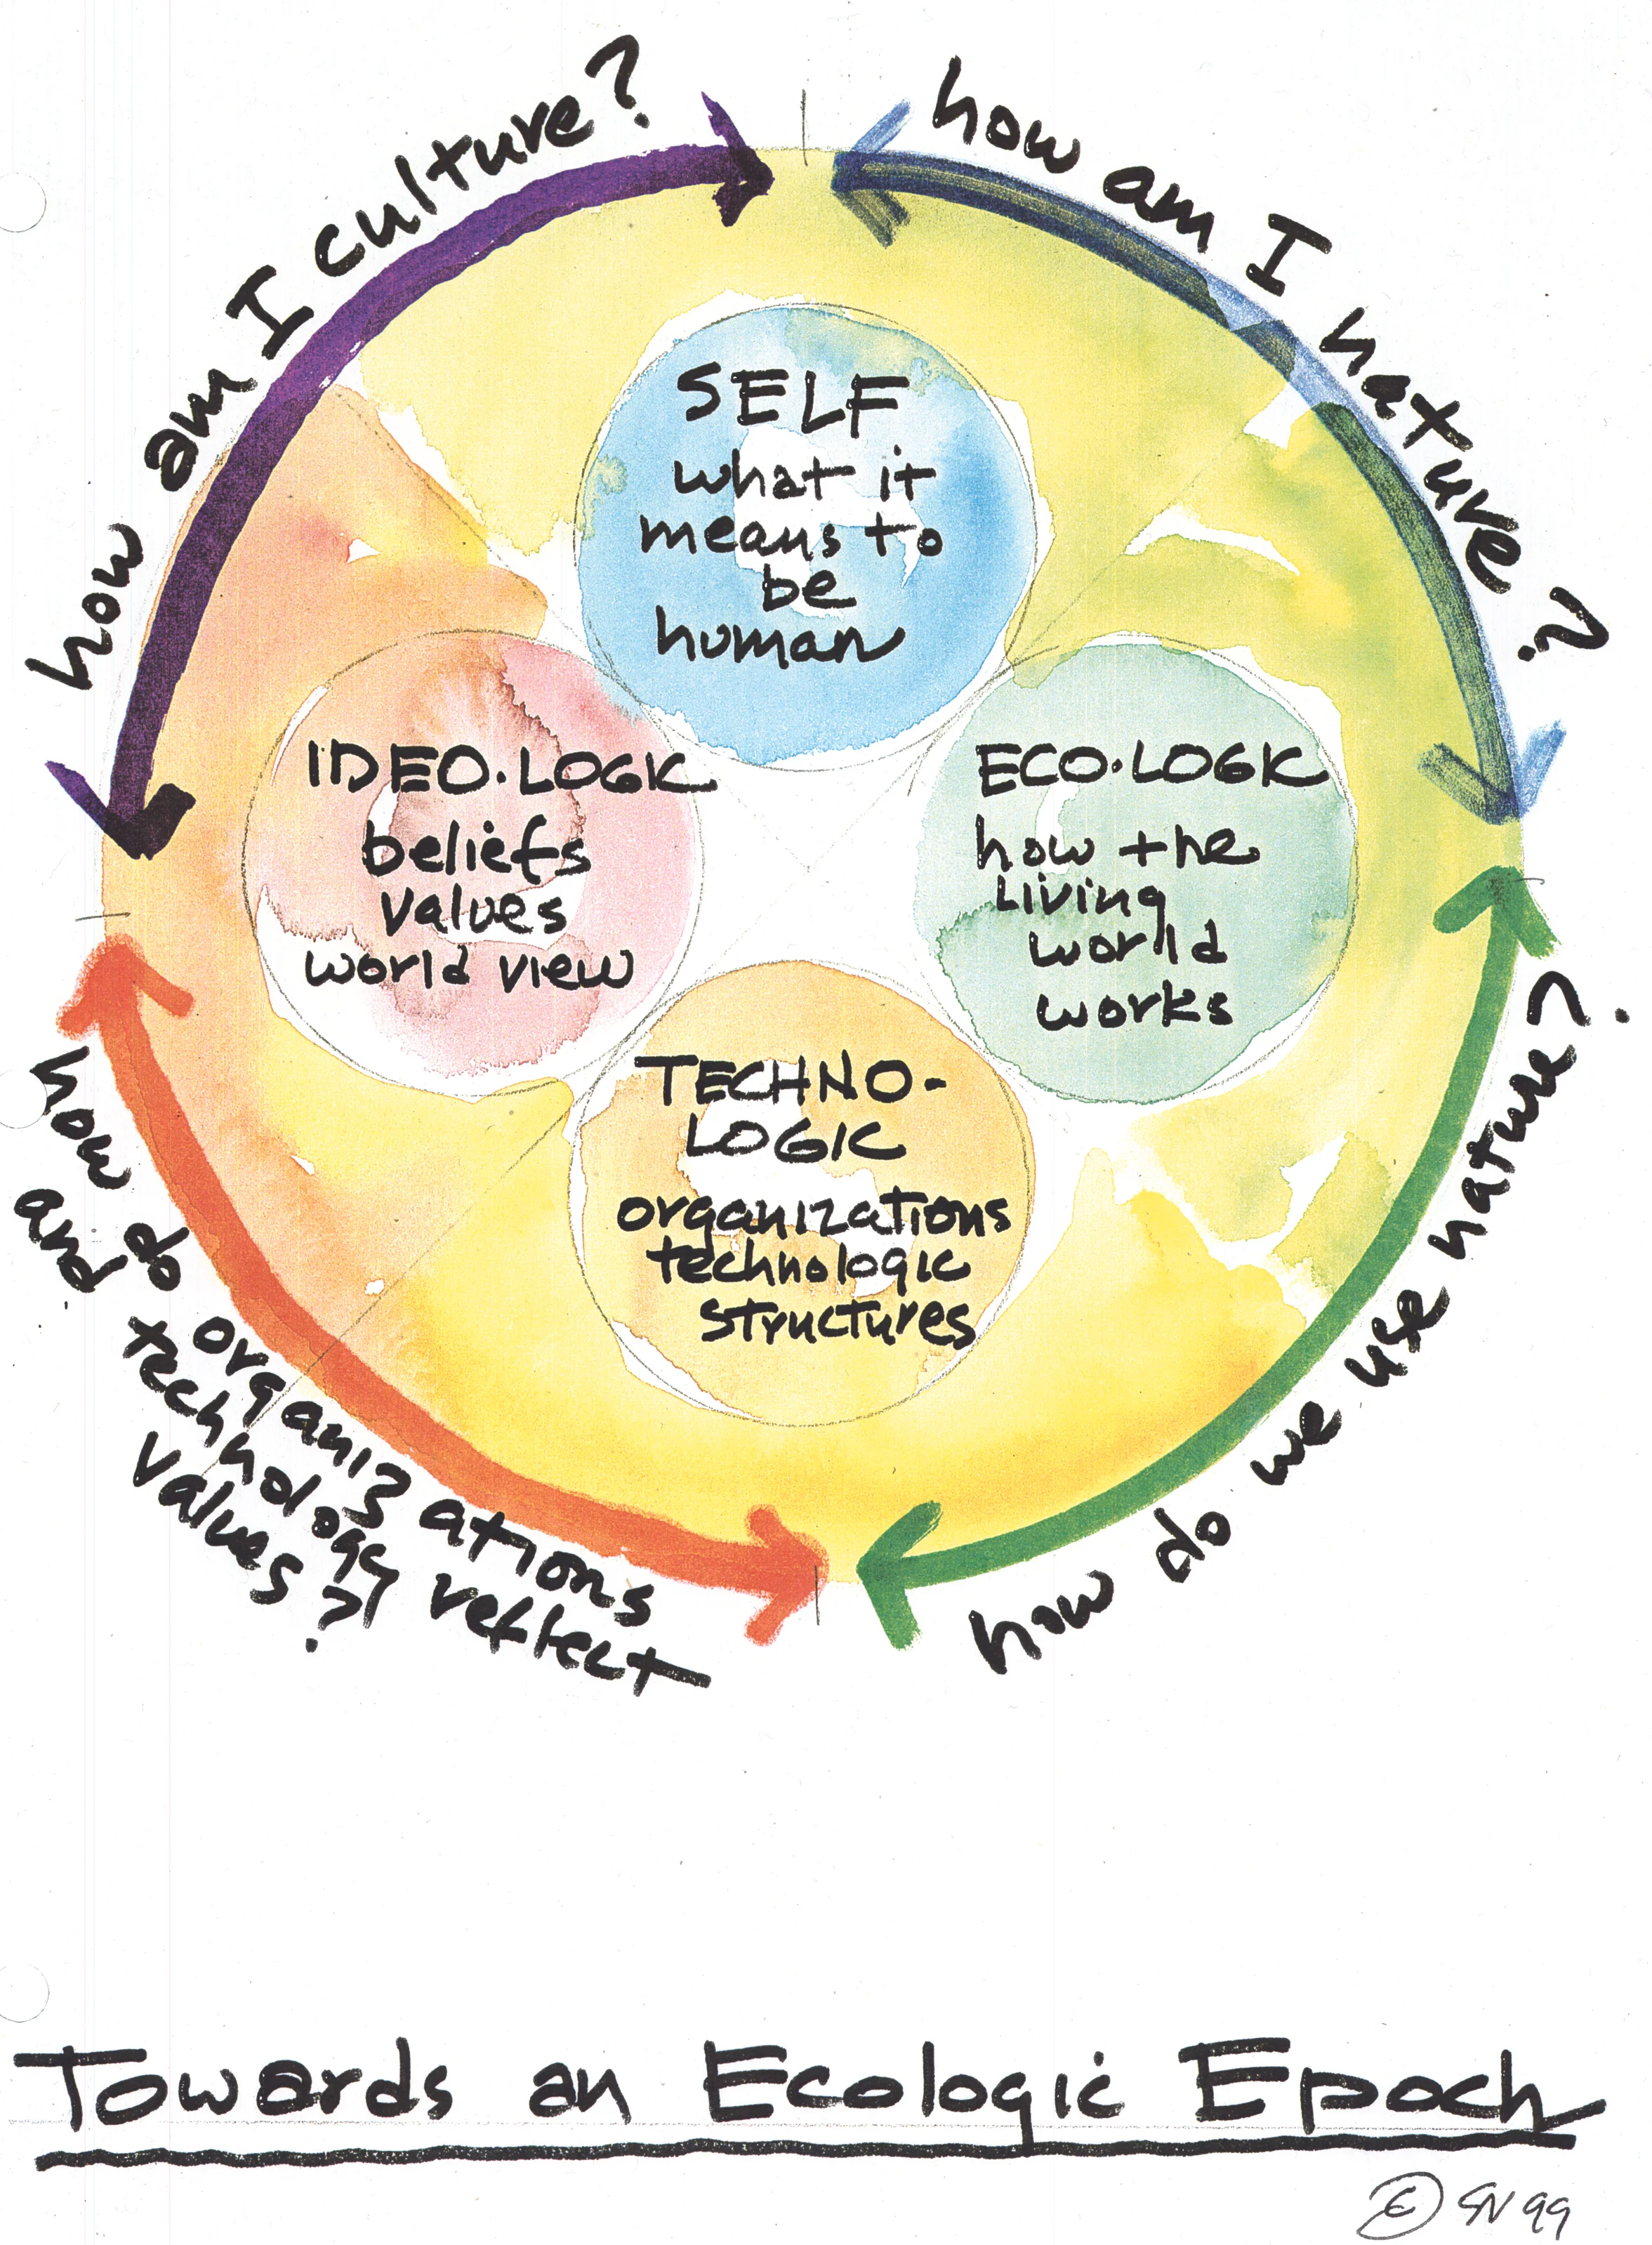 how am I culture?
how am I nature?
SELF
what it
means to
be
human
IDEO·LOGIC
beliefs
values
world view
ECO·LOGIC
how the
living
world
works
TECHNO-
LOGIC
organizations
technologic
structures
how do organizations
and technology reflect
values?
how do we use nature?
Towards an Ecologic Epoch
© SN 99